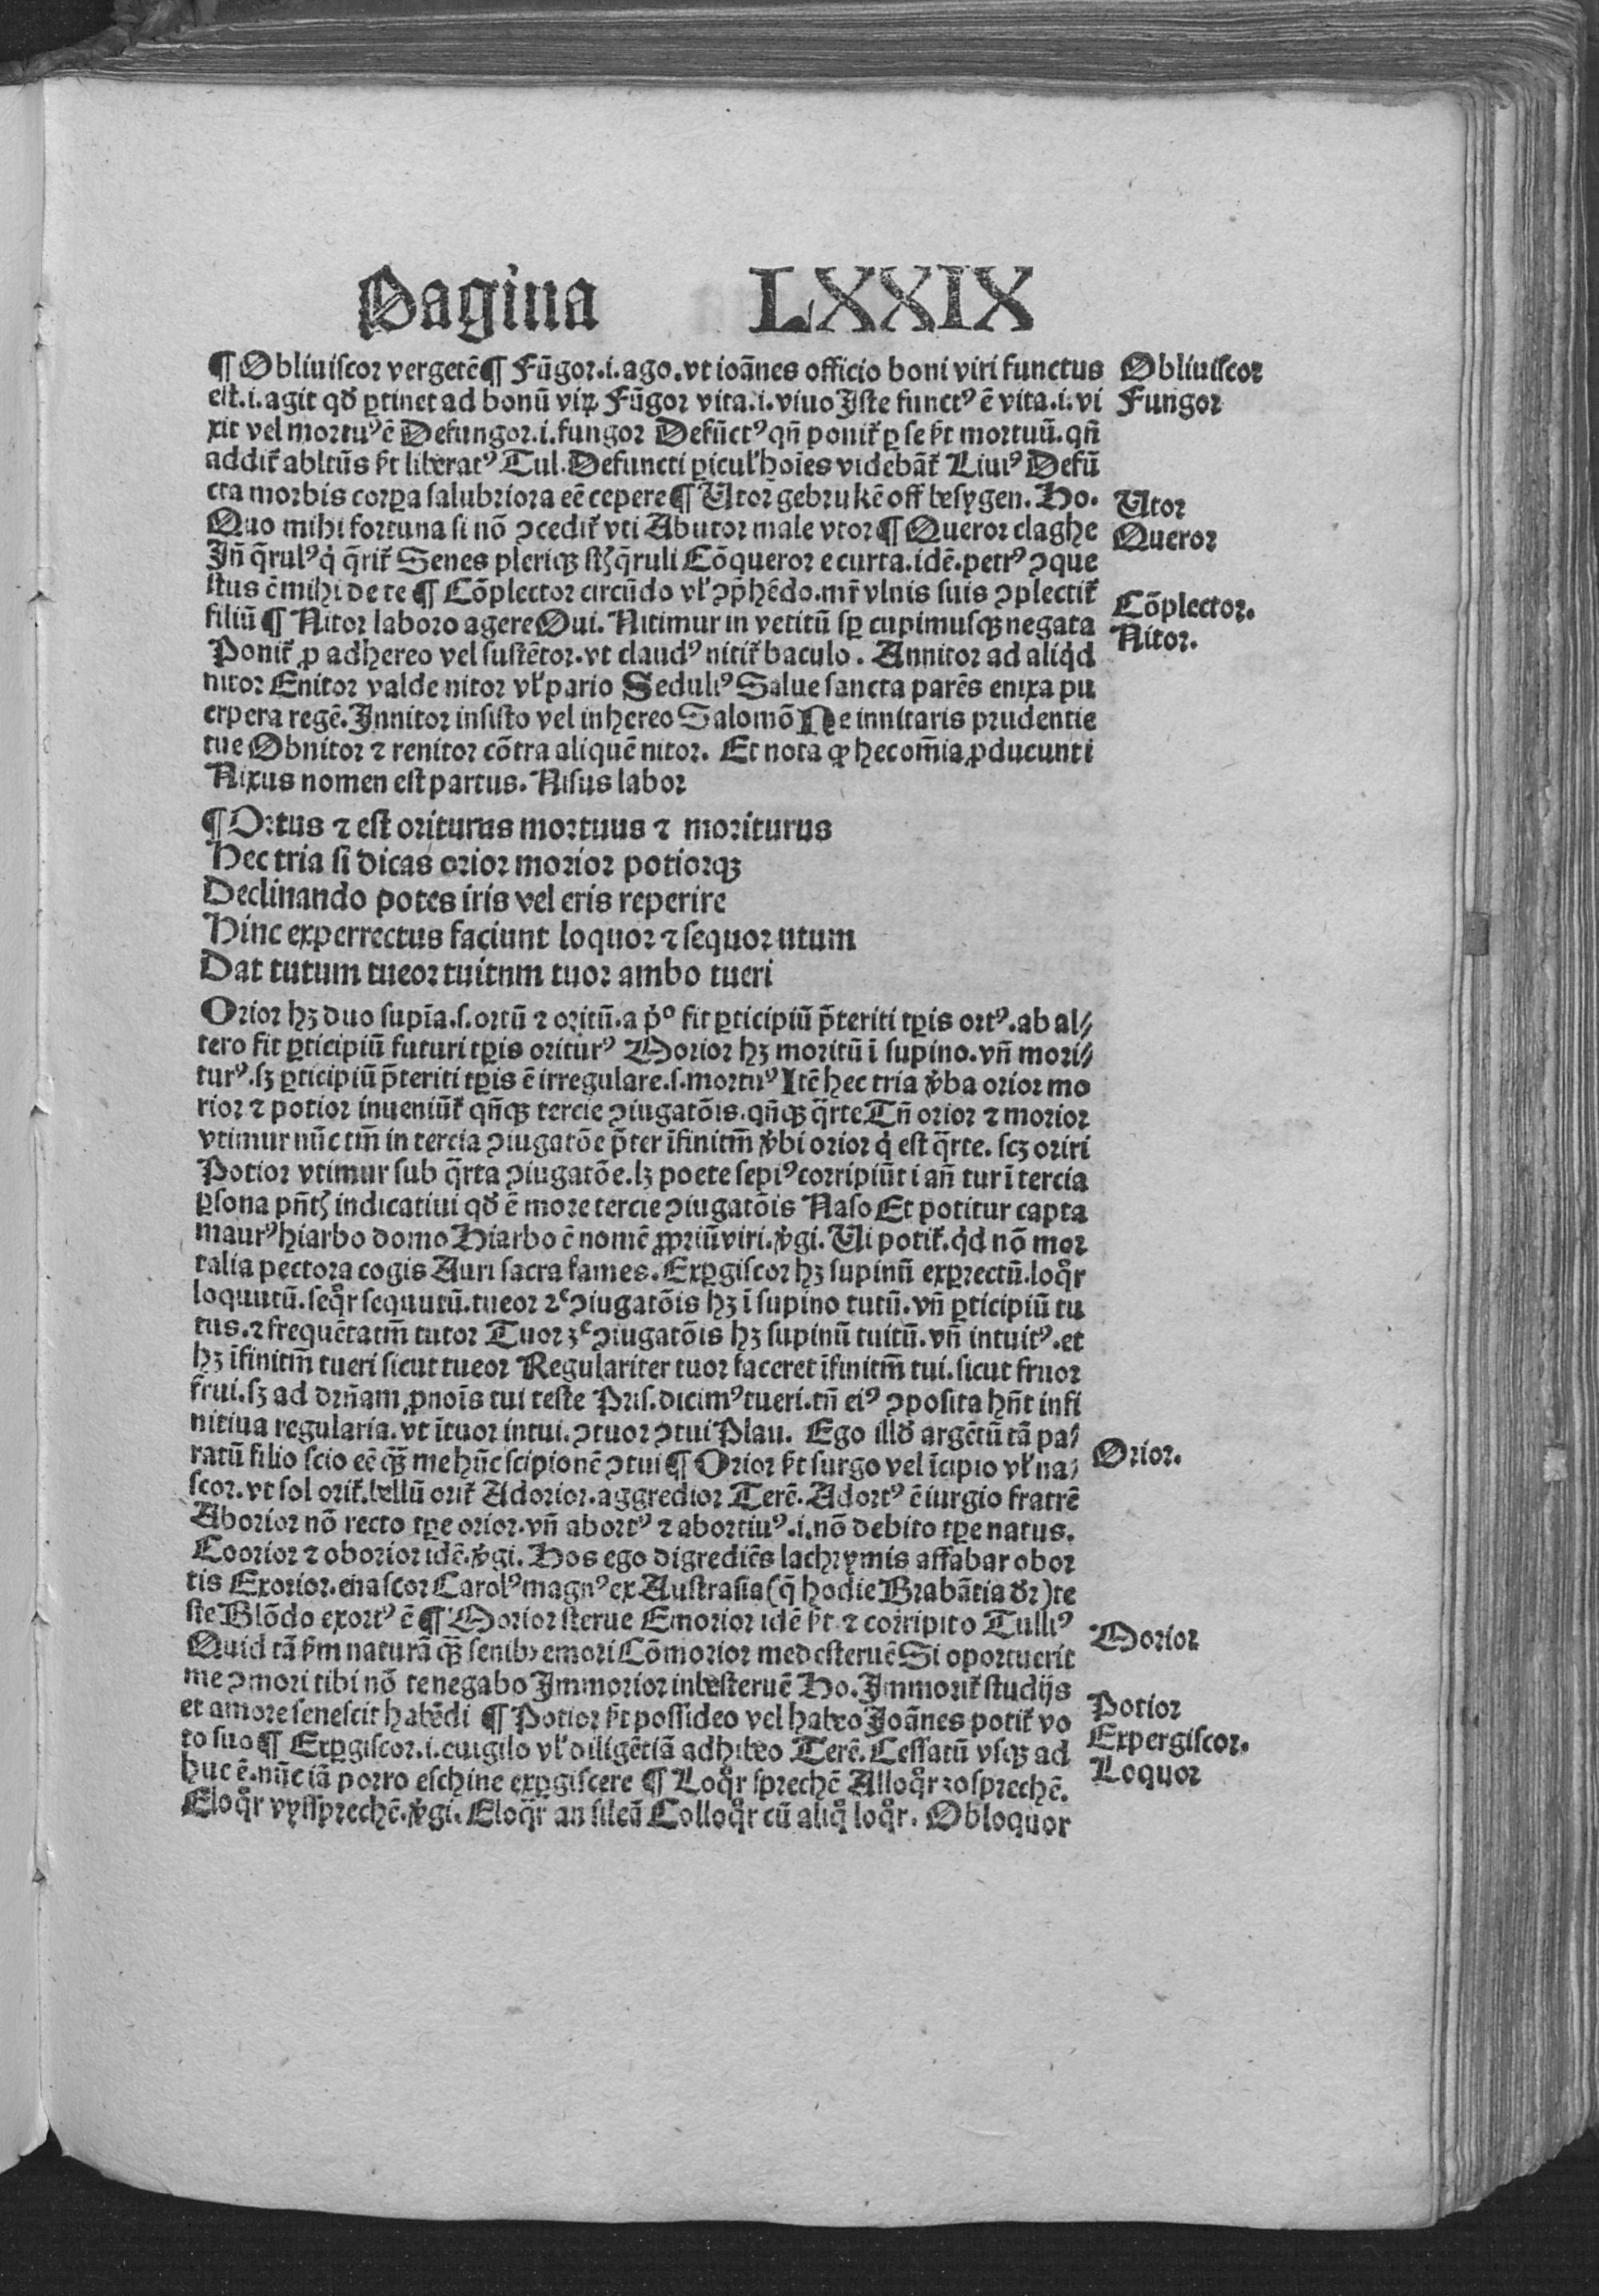 Pagina LXXIX
¶ Obliuiscor vergetē ¶ Fūgor.i.ago.vt ioānes officio boni viri functus
Obliuiscor
est.i.agit qđ ꝑtinet ad bonū viꝝ Fūgor vita.i.viuo Iste functꝰ ē vita.i.vi
Fungor
xit vel mortuꝰ ē Defungor.i.fungor Defūctꝰ qn̄ ponit᷑ ꝑ se s̄t mortuū.qn̄
addit᷑ abltūs s̄t liberatꝰ Tul.Defuncti ꝑicul' hoīes videbāt᷑ Liuiꝰ Defū
cta morbis corꝑa salubriora eē cepere ¶ Utor gebrukē off besygen. Ho.
Utor
Quo mihi fortuna si nō ꝯcedit᷑ vti Abutor male vtor ¶ Queror claghe
Queror
Jn̄ q̄rulꝰ q̇ q̄rit᷑ Senes pleriqꝫ st̄ q̄ruli Cōqueror e curta.idē.petrꝰ ꝯque
stus ē mihi de te ¶ Cōplector circūdo vl' ꝯp̄hēdo.mr̄ vlnis suis ꝯplectit᷑
Cōplector.
filiū ¶ Nitor laboro agere Oui. Nitimur in vetitū sꝑ cupimusqꝫ negata
Nitor.
Ponit᷑ ꝓ adhereo vel sustētor.vt claudꝰ nitit᷑ baculo. Annitor ad aliq̇d
nitor Enitor valde nitor vl' pario Seduliꝰ Salue sancta parēs enixa pu
erpera regē. Innitor insisto vel inhereo Salomō Ne innitaris prudentie
tue Obnitor ⁊ renitor cōtra aliquē nitor. Et nota ꝙ hec om̄ia ꝓducunt i
Nixus nomen est partus. Nisus labor
¶ Ortus ⁊ est oriturus mortuus ⁊ moriturus
Hec tria si dicas orior morior potiorqꝫ
Declinando potes iris vel eris reperire
Hinc experrectus faciunt loquor ⁊ sequor utum
Dat tutum tueor tuitum tuor ambo tueri
Orior hꝫ duo supīa.s.ortū ⁊ oritū.a p̄º fit ꝑticipiū p̄teriti tꝑis ortꝰ.ab al⸗
tero fit ꝑticipiū futuri tꝑis oriturꝰ Morior hꝫ moritū ī supino.vn̄ mori⸗
turꝰ.sꝫ ꝑticipiū p̄teriti tꝑis ē irregulare.s.mortuꝰ Itē hec tria v̄ba orior mo
rior ⁊ potior inueniūt᷑ qn̄qꝫ tercie ꝯiugatōis.qn̄qꝫ q̄rte Tn̄ orior ⁊ morior
vtimur nūc tm̄ in tercia ꝯiugatōe p̄ter īfinitm̄ v̄bi orior q̇ est q̄rte.scꝫ oriri
Potior vtimur sub q̄rta ꝯiugatōe.lꝫ poete sepiꝰ corripiūt i an̄ tur ī tercia
ꝑsona pn̄tꝭ indicatiui qđ ē more tercie ꝯiugatōis Naso Et potitur capta
maurꝰ hiarbo domo Hiarbo ē nomē ꝓpriū viri.v̄gi. Ui potit᷑.q̇d nō mor
talia pectora cogis Auri sacra fames. Exꝑgiscor hꝫ supinū exꝑrectū.loqͦr
loquutū.seqͦr sequutū.tueor ꝛͤ ꝯiugatōis hꝫ ī supino tutū.vn̄ ꝑticipiū tu
tus.⁊ frequētatm̄ tutor Tuor ʒͤ ꝯiugatōis hꝫ supinū tuitū.vn̄ intuitꝰ.et
hꝫ īfinitm̄ tueri sicut tueor Regulariter tuor faceret īfinitm̄ tui.sicut fruor
frui.sꝫ ad drn̄am ꝓnoīs tui teste Pris.dicimꝰ tueri.tn̄ eiꝰ ꝯposita hn̄t infi
nitiua regularia.vt ītuor intui.ꝯtuor ꝯtui Plau. Ego illđ argētū tā pa⸗
ratū filio scio eē qꝫ̄ me hūc scipionē ꝯtui ¶ Orior s̄t surgo vel īcipio vl' na⸗
Orior.
scor.vt sol orit᷑.bellū orit᷑ Adorior.aggredior Terē. Adortꝰ ē iurgio fratrē
Aborior nō recto tꝑe orior.vn̄ abortꝰ ⁊ abortiuꝰ.i.nō debito tꝑe natus.
Coorior ⁊ oborior idē.v̄gi. Hos ego digrediēs lachrymis affabar obor
tis Exorior.enascor Carolꝰ magnꝰ ex Austrasia (q̄ hodie Brabātia dr̄) te
ste Blōdo exortꝰ ē ¶ Morior sterue Emorior idē s̄t ⁊ corripito Tulliꝰ
Morior
Quid tā s̄m naturā qꝫ senibꝫ emori Cōmorior medesteruē Si oportuerit
me ꝯmori tibi nō te negabo Immorior inbesteruē Ho. Immorit᷑ studijs
et amore senescit habēdi ¶ Potior s̄t possideo vel habeo Joānes potit᷑ vo
Potior
to suo ¶ Exꝑgiscor.i.euigilo vl' diligētiā adhibeo Terē. Cessatū vsqꝫ ad
Expergiscor.
huc ē.nūc iā porro eschine exꝑgiscere ¶ Loqͦr sprechē Alloqͦr zosprechē.
Loquor
Eloqͦr vyssprechē.v̄gi. Eloqͦr an sileā Colloqͦr cū aliqͦ loqͦr. Obloquor